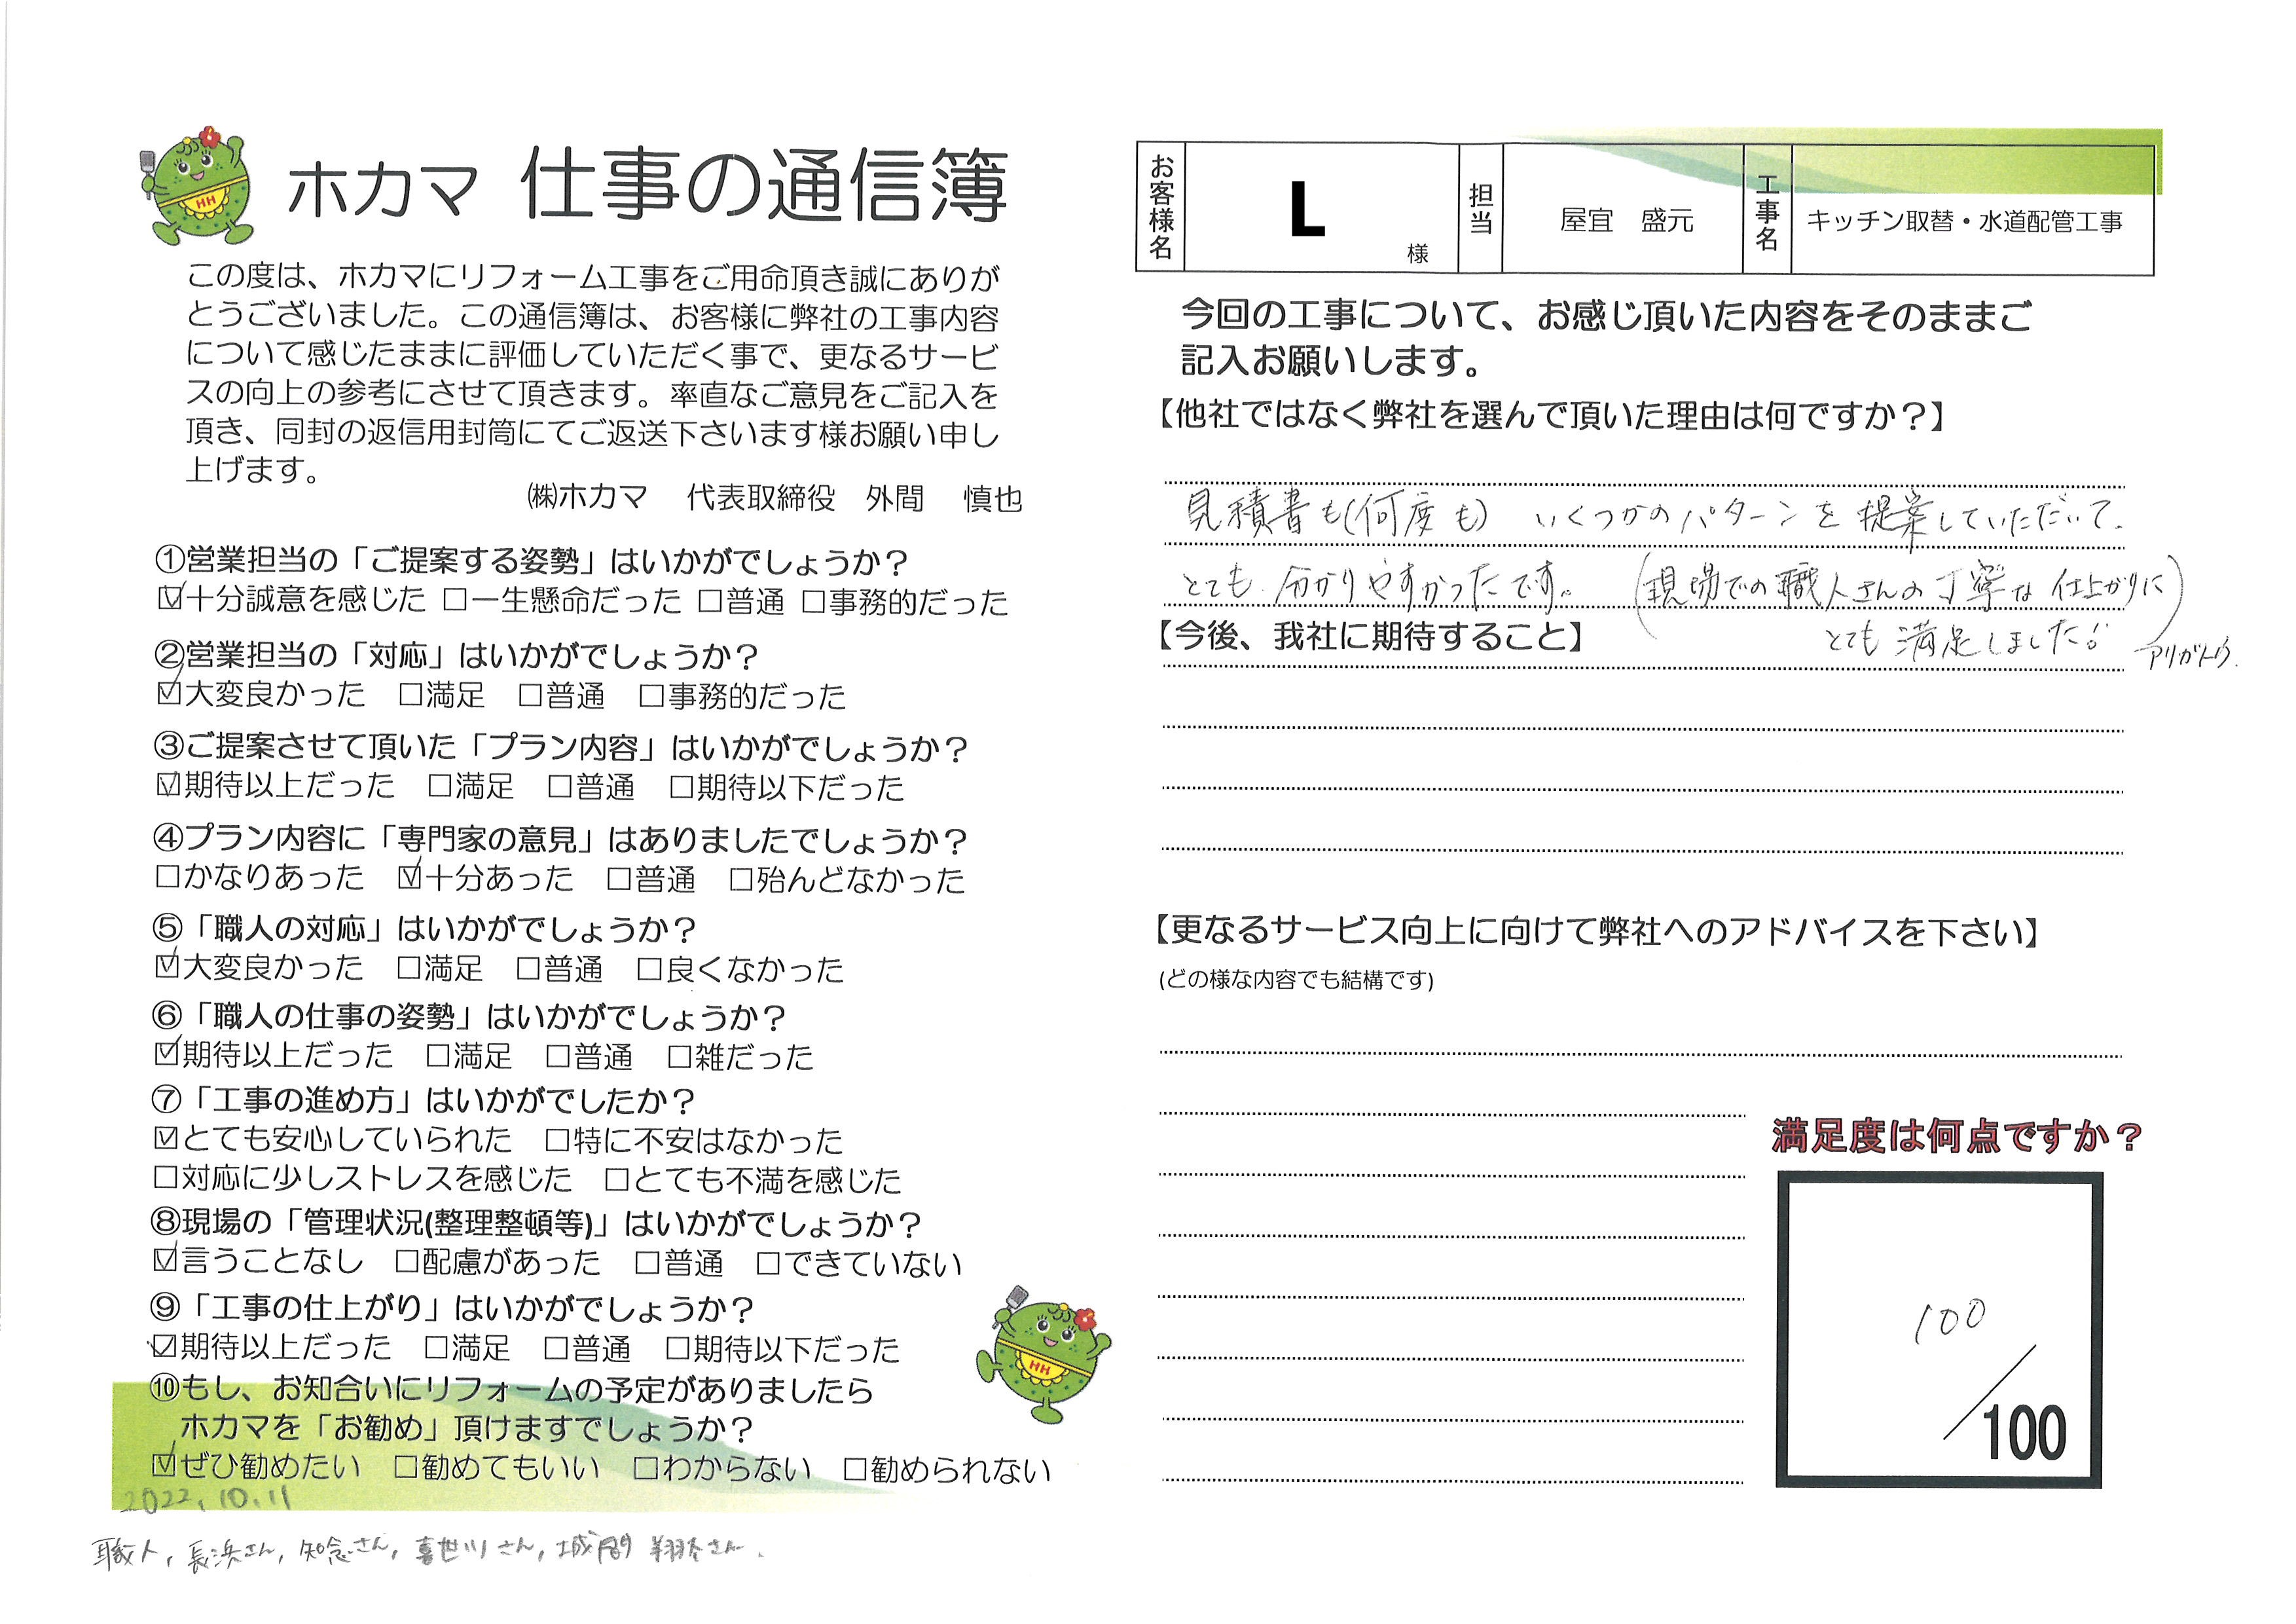 ホカマ 仕事の通信簿
この度は、ホカマにリフォーム工事をご用命頂き誠にありが
とうございました。この通信簿は、お客様に弊社の工事内容
について感じたままに評価していただく事で、更なるサービ
スの向上の参考にさせて頂きます。率直なご意見をご記入を
頂き、同封の返信用封筒にてご返送下さいます様お願い申し
上げます。
㈱ホカマ 代表取締役 外間 慎也
①営業担当の「ご提案する姿勢」はいかがでしょうか？
☑十分誠意を感じた □一生懸命だった □普通 □事務的だった
②営業担当の「対応」はいかがでしょうか？
☑大変良かった □満足 □普通 □事務的だった
③ご提案させて頂いた「プラン内容」はいかがでしょうか？
☑期待以上だった □満足 □普通 □期待以下だった
④プラン内容に「専門家の意見」はありましたでしょうか？
□かなりあった ☑十分あった □普通 □殆んどなかった
⑤「職人の対応」はいかがでしょうか？
☑大変良かった □満足 □普通 □良くなかった
⑥「職人の仕事の姿勢」はいかがでしょうか？
☑期待以上だった □満足 □普通 □雑だった
⑦「工事の進め方」はいかがでしたか？
☑とても安心していられた □特に不安はなかった
□対応に少しストレスを感じた □とても不満を感じた
⑧現場の「管理状況(整理整頓等)」はいかがでしょうか？
☑言うことなし □配慮があった □普通 □できていない
⑨「工事の仕上がり」はいかがでしょうか？
☑期待以上だった □満足 □普通 □期待以下だった
⑩もし、お知合いにリフォームの予定がありましたら
ホカマを「お勧め」頂けますでしょうか？
☑ぜひ勧めたい □勧めてもいい □わからない □勧められない
2022.10.11
職人, 長浜さん, 知念さん, 喜世川さん, 城間 翔太さん.
お客様名 L 様 担当 屋宜 盛元 工事名 キッチン取替・水道配管工事
今回の工事について、お感じ頂いた内容をそのままご
記入お願いします。
【他社ではなく弊社を選んで頂いた理由は何ですか？】
見積書も(何度も) いくつかのパターンを提案していただいて、
とても分かりやすかったです。 (現場での職人さんの丁寧な仕上がりに
とても満足しました!) アリガトウ.
【今後、我社に期待すること】
【更なるサービス向上に向けて弊社へのアドバイスを下さい】
(どの様な内容でも結構です)
満足度は何点ですか？
100
/100
HH
HH